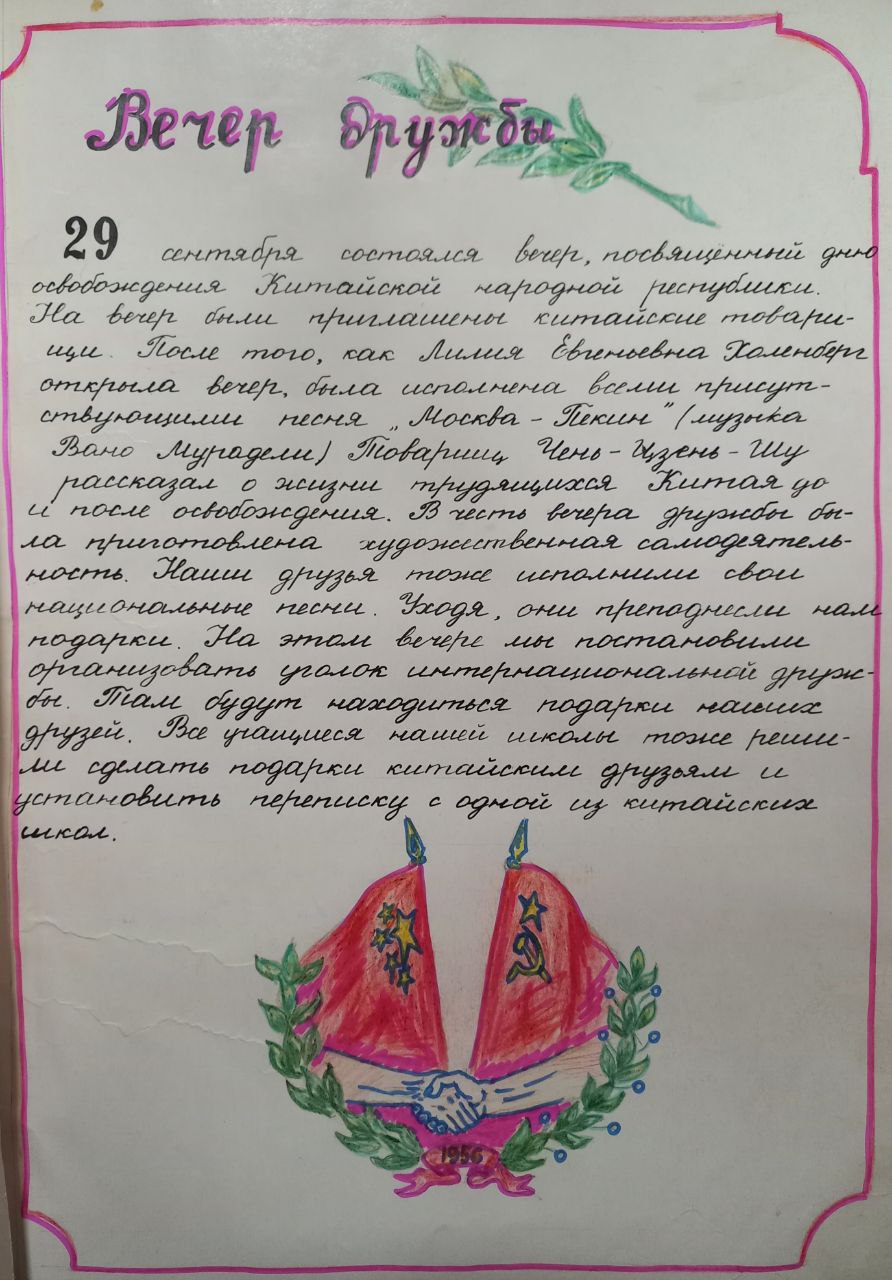 Вечер дружбы
29 сентября состоялся вечер, посвященный дню
освобождения Китайской народной республики.
На вечер были приглашены китайские товари-
щи. После того, как Лилия Евгеньевна Холенберг
открыла вечер, была исполнена всеми присут-
ствующими песня „Москва - Пекин" (музыка
Вано Мурадели) Товарищ Чень-Цзень-Шу
рассказал о жизни трудящихся Китая до
и после освобождения. В честь вечера дружбы бы-
ла приготовлена художественная самодеятель-
ность. Наши друзья тоже исполнили свои
национальные песни. Уходя, они преподнесли нам
подарки. На этом вечере мы постановили
организовать уголок интернациональной друж-
бы. Там будут находиться подарки наших
друзей. Все учащиеся нашей школы тоже реши-
ли сделать подарки китайским друзьям и
установить переписку с одной из китайских
школ.
1956